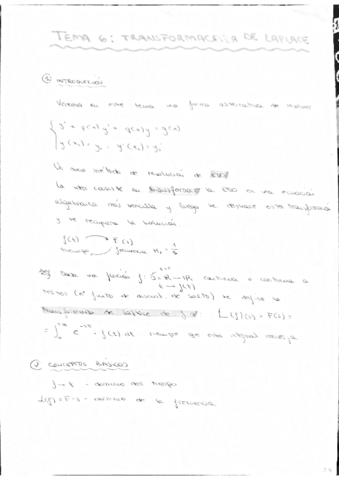 TEMA 6: TRANSFORMACIÓN DE LAPLACE
① INTRODUCCIÓN
Veremos en este tema una forma alternativa de resolver
y'' + p(x)y' + q(x)y = g(x)
y(x₀) = y₀ y'(x₀) = y₀'
El nuevo método de resolución de EDO
La idea consiste en transformar la EDO en una ecuación
algebraica más sencilla y luego se deshace esta transformada
y se recupera la solución
f(t) → F(s)
tiempo frecuencia Hz = 1/s
Def Dada una función f: → ℝ continua o continua a
t → f(t)
trozos (nº finito de discont. de salto) se define la
transformada de Laplace de f : L(f)(s) = F(s) =
= ∫₀^{+∞} e^{-st} · f(t) dt siempre que esta integral converja
② CONCEPTOS BÁSICOS
f → t - dominio del tiempo
L(f) = F → s - dominio de la frecuencia